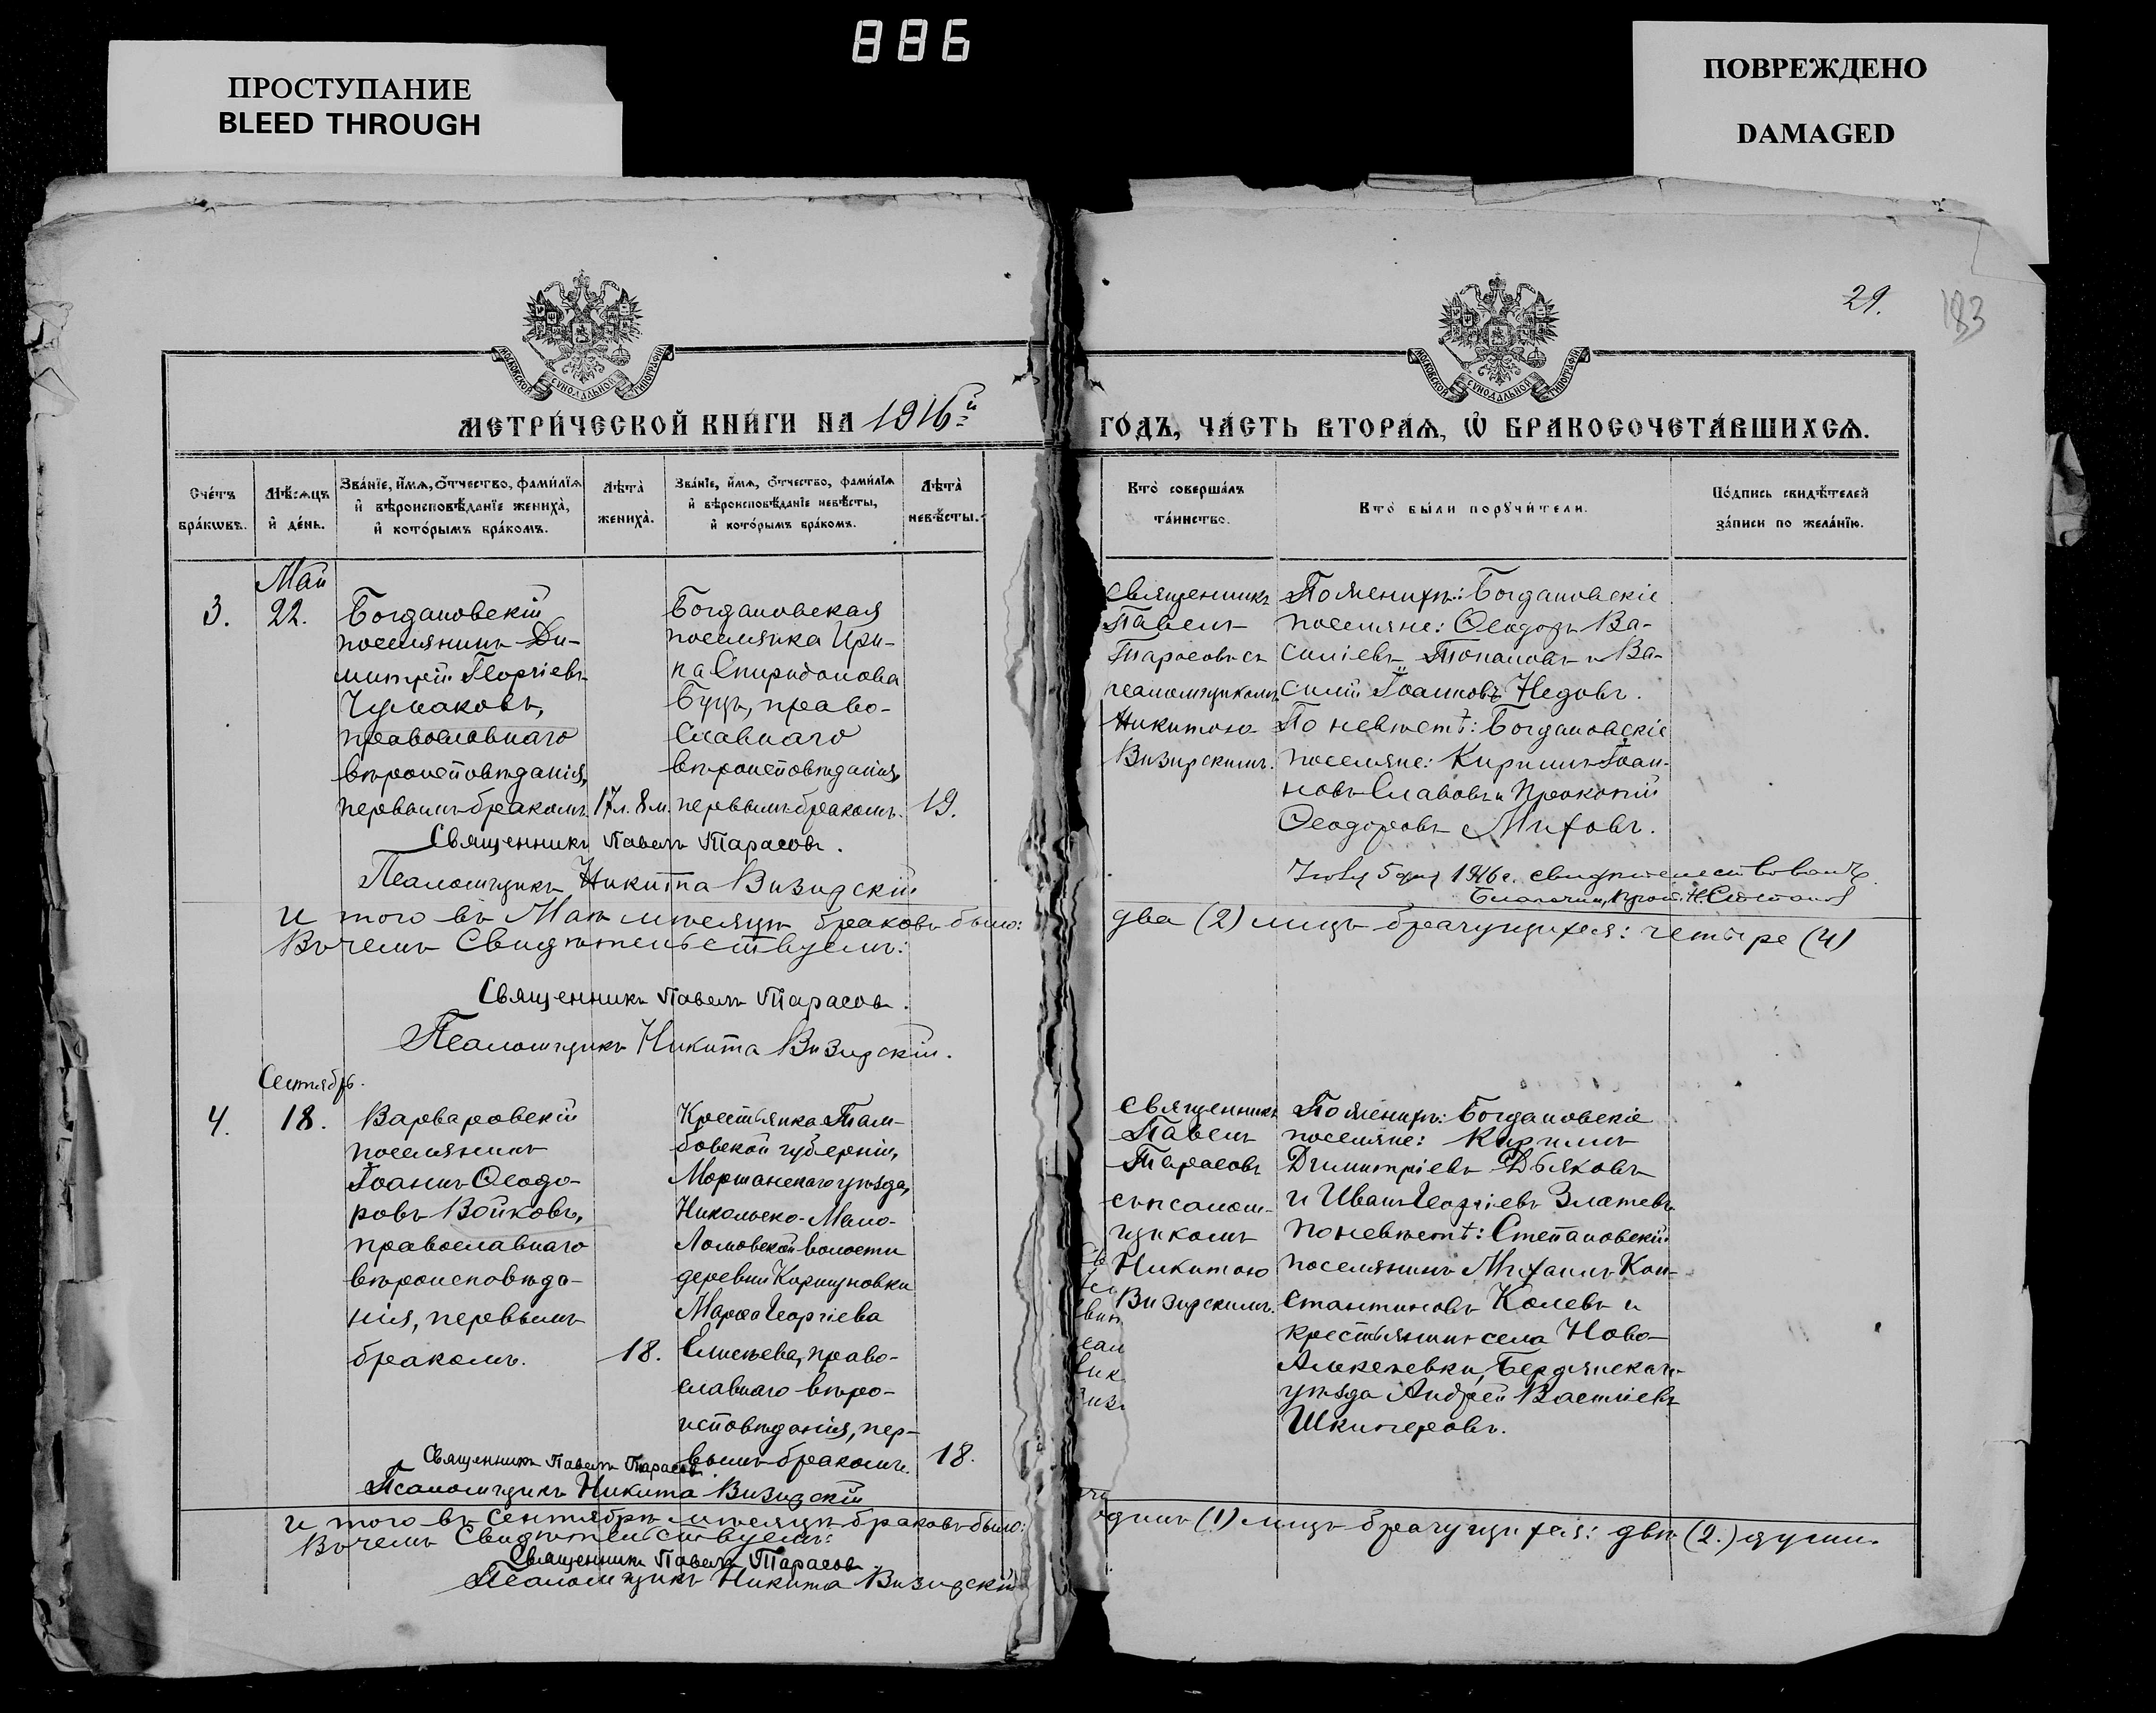 886
ПРОСТУПАНИЕ
BLEED THROUGH
ПОВРЕЖДЕНО
DAMAGED
29.
183
МОСКОВСКОЙ СѴНОДАЛЬНОЙ ТИПОГРАФІИ
МОСКОВСКОЙ СѴНОДАЛЬНОЙ ТИПОГРАФІИ
МЕТРИ́ЧЕСКОЙ КНИ́ГИ НА 1916й
ГО́ДЪ, ЧА́СТЬ ВТОРА́Ѧ, Ѡ҆ БРАКОСОЧЕТА́ВШИХСѦ.
Сче́тъ
бра́кѡвъ.
Мѣ́сѧцъ
и҆ де́нь.
Зва́нїе, и҆́мѧ, ѻ҆́тчество, фами́лїѧ
и҆ вѣроисповѣ́данїе жениха̀,
и҆ кото́рымъ бра́комъ.
Лѣ́та
жениха̀.
Зва́нїе, и҆́мѧ, ѻ҆́тчество, фами́лїѧ
и҆ вѣроисповѣ́данїе невѣ́сты,
и҆ кото́рымъ бра́комъ.
Лѣ́та
невѣ́сты.
Кто̀ соверша́лъ
та́инство.
Кто̀ бы́ли порꙋчи́тели.
По́дпись свидѣ́телей
за́писи по жела́нїю.
Май
3.
22.
Богдановскій
поселянинъ Ди-
митрій Георгіевъ
Чумаковъ,
православнаго
вѣроисповѣданія,
первымъ бракомъ.
17 л. 8 м.
Богдановская
поселянка Ири-
на Спиридонова
Буцъ, право-
славнаго
вѣроисповѣданія,
первымъ бракомъ.
19.
Священникъ
Павелъ
Тарасовъ съ
псаломщикомъ
Никитою
Визирскимъ.
По женихѣ: Богдановскіе
поселяне: Ѳеодоръ Ва-
силіевъ Топаловъ и Ва-
силій Іоанновъ Недовъ.
По невѣстѣ: Богдановскіе
поселяне: Кириллъ Іоан-
новъ Славовъ и Прокопій
Ѳеодоровъ Миховъ.
Священникъ Павелъ Тарасовъ.
Псаломщикъ Никита Визирскій
5 дня 1916 г. свидѣтельствовалъ
Благочин. Прот. Н.
И того въ Маѣ мѣсяцѣ браковъ было:
два (2) лицъ брачущихся: четыре (4)
Въ чемъ Свидѣтельствуемъ:
Священникъ Павелъ Тарасовъ.
Псаломщикъ Никита Визирскій.
Сентябрь.
4.
18.
Варваровскій
поселянинъ
Іоаннъ Ѳеодо-
ровъ Войковъ,
православнаго
вѣроисповѣда-
нія, первымъ
бракомъ.
18.
Крестьянка Там-
бовской губерніи,
Моршанскаго уѣзда,
Никольско-Мало-
Ломовской волости
деревни Коршуновки
Марѳа Георгіева
Елисѣева, право-
славнаго вѣро-
исповѣданія, пер-
вымъ бракомъ.
18.
Священникъ
Павелъ
Тарасовъ
съ псалом-
щикомъ
Никитою
Визирскимъ.
По женихѣ: Богдановскіе
поселяне: Кириллъ
Димитріевъ Дьяковъ
и Иванъ Георгіевъ Златевъ
По невѣстѣ: Степановскій
поселянинъ Михаилъ Кон-
стантиновъ Колевъ и
крестьянинъ села Ново-
Алексѣевки, Бердянскаго
уѣзда Андрей Василіевъ
Шкитеровъ.
Священникъ Павелъ Тарасовъ
Псаломщикъ Никита Визирскій
И того въ Сентябрѣ мѣсяцѣ браковъ было:
одинъ (1) лицъ брачущихся: двѣ (2.) души.
Въ чемъ Свидѣтельствуемъ:
Священникъ Павелъ Тарасовъ
Псаломщикъ Никита Визирскій